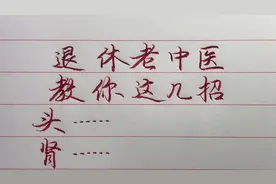 退休老中医
教你这几招
头……
肾……